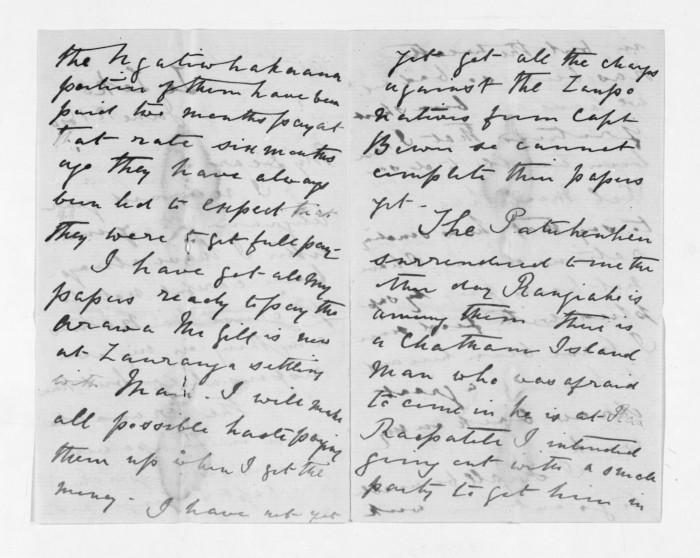 the Ngatiwhakaaua
portion of them have been
paid two months pay at
that rate six months
ago they have always
been led to expect that
they were to get full pay-
I have got all my
papers ready to pay the
Arawa McGill is now
at Tauranga settling
with Mair. I will make
all possible haste paying
them up when I get the
money - I have not yet
yet got all the charges
against the Taupo
natives from Capt
so cannot
complete their papers
yet -
The Patuheuheu
surrendered to me the
other day is
among them there is
a Chatham Island
man who was afraid
to come in he is at
I intended
going out with a small
party to get him in